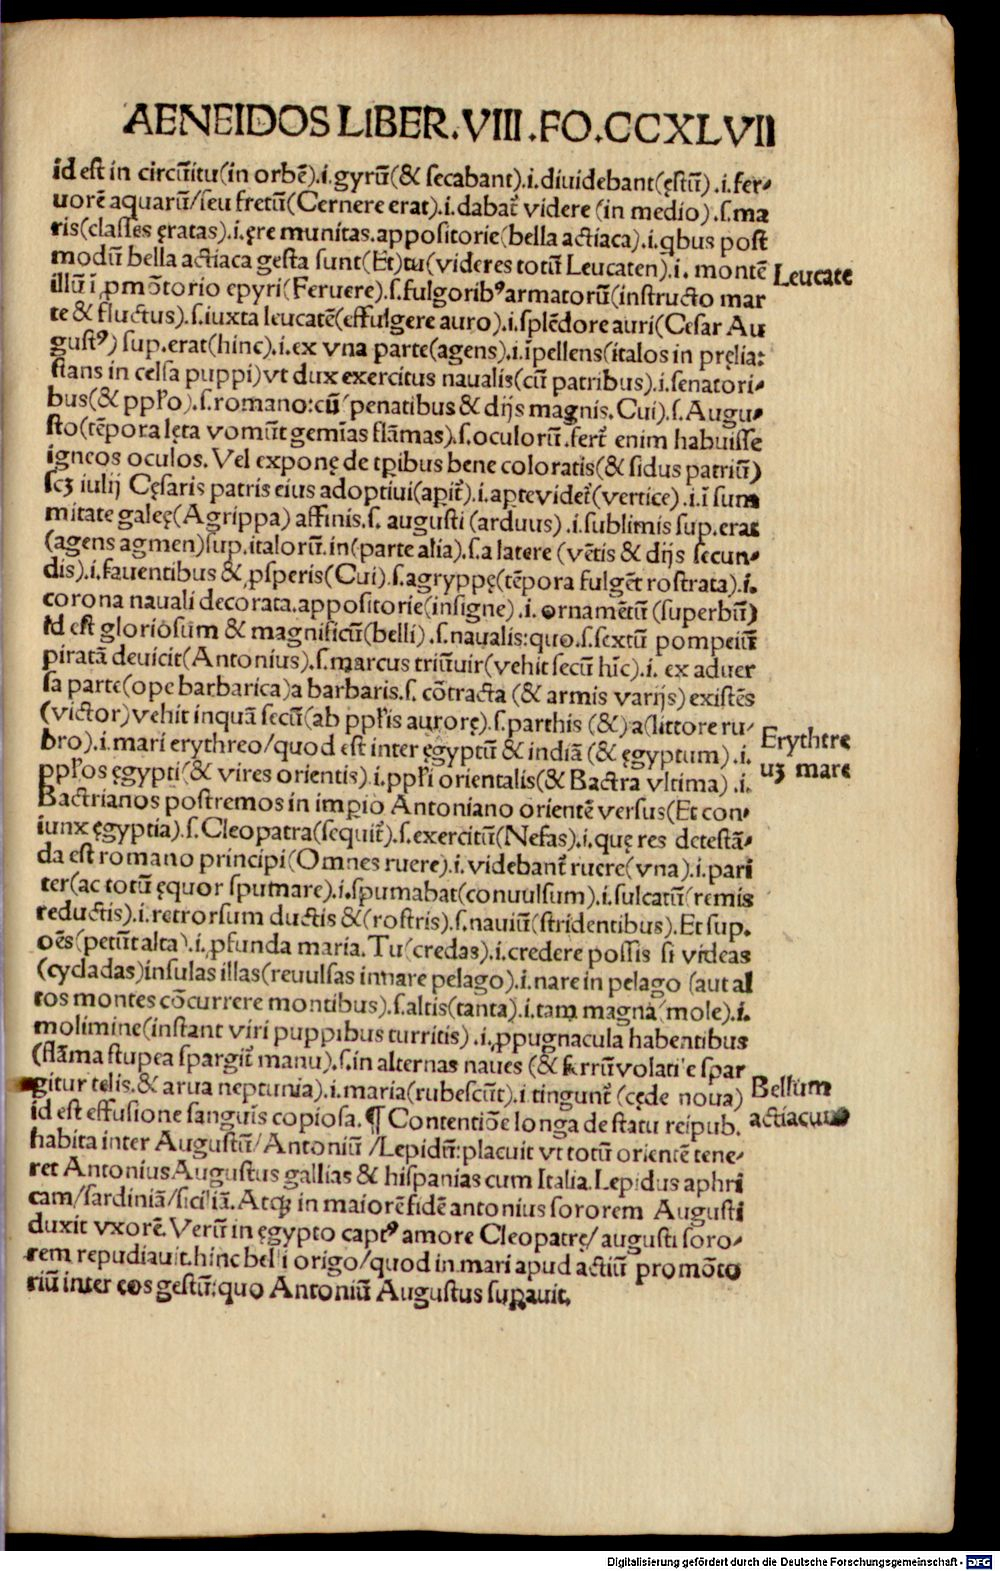 AENEIDOS LIBER.VIII.FO.CCXLVII
id est in circũitu(in orbẽ).i.gyrũ(& secabant).i.diuidebant(ęstũ).i.fer-
uorẽ aquarũ/seu fretũ(Cernere erat).i.dabat̃ videre (in medio).s.ma
ris(classes ęratas).i.ęre munitas.appositorie(bella actiaca).i.q̃bus post
modũ bella actiaca gesta sunt(Et)tu(videres totũ Leucaten).i. montẽ
Leucate
illũ ĩ ꝓmõtorio epyri(Feruere).s.fulgoribꝰ armatorũ(instructo mar
te & fluctus).s.iuxta leucatẽ(effulgere auro).i.splẽdore auri(Cesar Au
gustꝰ) sup.erat(hinc).i.ex vna parte(agens).i.ĩpellens(italos in pręlia:
stans in celsa puppi)vt dux exercitus naualis(cũ patribus).i.senatori-
bus(& ppl̃o).s.romano:cũ(penatibus & dijs magnis. Cui).s.Augu-
sto(tẽpora lęta vomũt gemĩas flãmas).s.oculorũ.fert̃ enim habuisse
igneos oculos. Vel exponę de tꝑibus bene coloratis(& sidus patriũ)
scꝫ iulij Cęsaris patris eius adoptiui(aꝑit̃).i.aꝑte videt̃(vertice).i.ĩ sum
mitate galeę(Agrippa) affinis.s. augusti (arduus).i.sublimis sup.erat
(agens agmen)sup.italorũ.in(parte alia).s.a latere (vẽtis & dijs secun-
dis).i.fauentibus & ꝓsperis(Cui).s.agryppę(tẽpora fulgẽt rostrata).i.
corona nauali decorata.appositorie(insigne).i. ornamẽtũ (superbũ)
id est gloriosum & magnificũ(belli).s.naualis:quo.s.sextũ pompeiũ
piratã deuicit(Antonius).s.marcus triũuir(vehit secũ hĩc).i. ex aduer
sa parte(ope barbarica)a barbaris.s. cõtracta (& armis varijs) existẽs
(victor)vehit inquã secũ(ab ppl̃is aurorę).s.parthis (&)a(littore ru-
bro).i.mari erythreo/quod est inter ęgyptũ & indiã (& ęgyptum).i.
Erythre
uꝫ mare
ppl̃os ęgypti(& vires orientis).i.ppl̃i orientalis(& Bactra vltima).i.
Bactrianos postremos in imꝑio Antoniano orientẽ versus(Et con-
iunx ęgyptia).s.Cleopatra(sequit̃).s.exercitũ(Nefas).i.quę res detestã-
da est romano principi(Omnes ruere).i.videbant̃ ruere(vna).i.pari
ter(ac totũ ęquor spumare).i.spumabat(conuulsum).i.sulcatũ(remis
reductis).i.retrorsum ductis &(rostris).s.nauiũ(stridentibus).Et sup.
oẽs(petũt alta).i.ꝓfunda maria.Tu(credas).i.credere possis si videas
(cycladas)insulas illas(reuulsas innare pelago).i.nare in pelago (aut al
tos montes cõcurrere montibus).s.altis(tanta).i.tam magna(mole).i.
molimine(instant viri puppibus turritis).i.ꝓpugnacula habentibus
(flãma stupea spargit̃ manu).s.in alternas naues (& ferrũ volatile spar
gitur telis.& arua neptunia).i.maria(rubescũt).i.tingunt̃ (cęde noua)
Bellum
id est effusione sanguis copiosa.¶ Contentiõe longa de statu reipub.
actiacum
habita inter Augustũ/Antoniũ/Lepidũ:placuit vt totũ orientẽ tene-
ret Antonius Augustus gallias & hispanias cum Italia.Lepidus aphri
cam/sardiniã/siciliã. Atqꝫ in maiorẽ fidẽ antonius sororem Augusti
duxit vxorẽ. Verũ in ęgypto captꝰ amore Cleopatrę/augusti soro-
rem repudiauit.hinc belli origo/quod in mari apud actiũ promõto
riũ inter eos gestũ:quo Antoniũ Augustus suꝑauit.
Digitalisierung gefördert durch die Deutsche Forschungsgemeinschaft - DFG